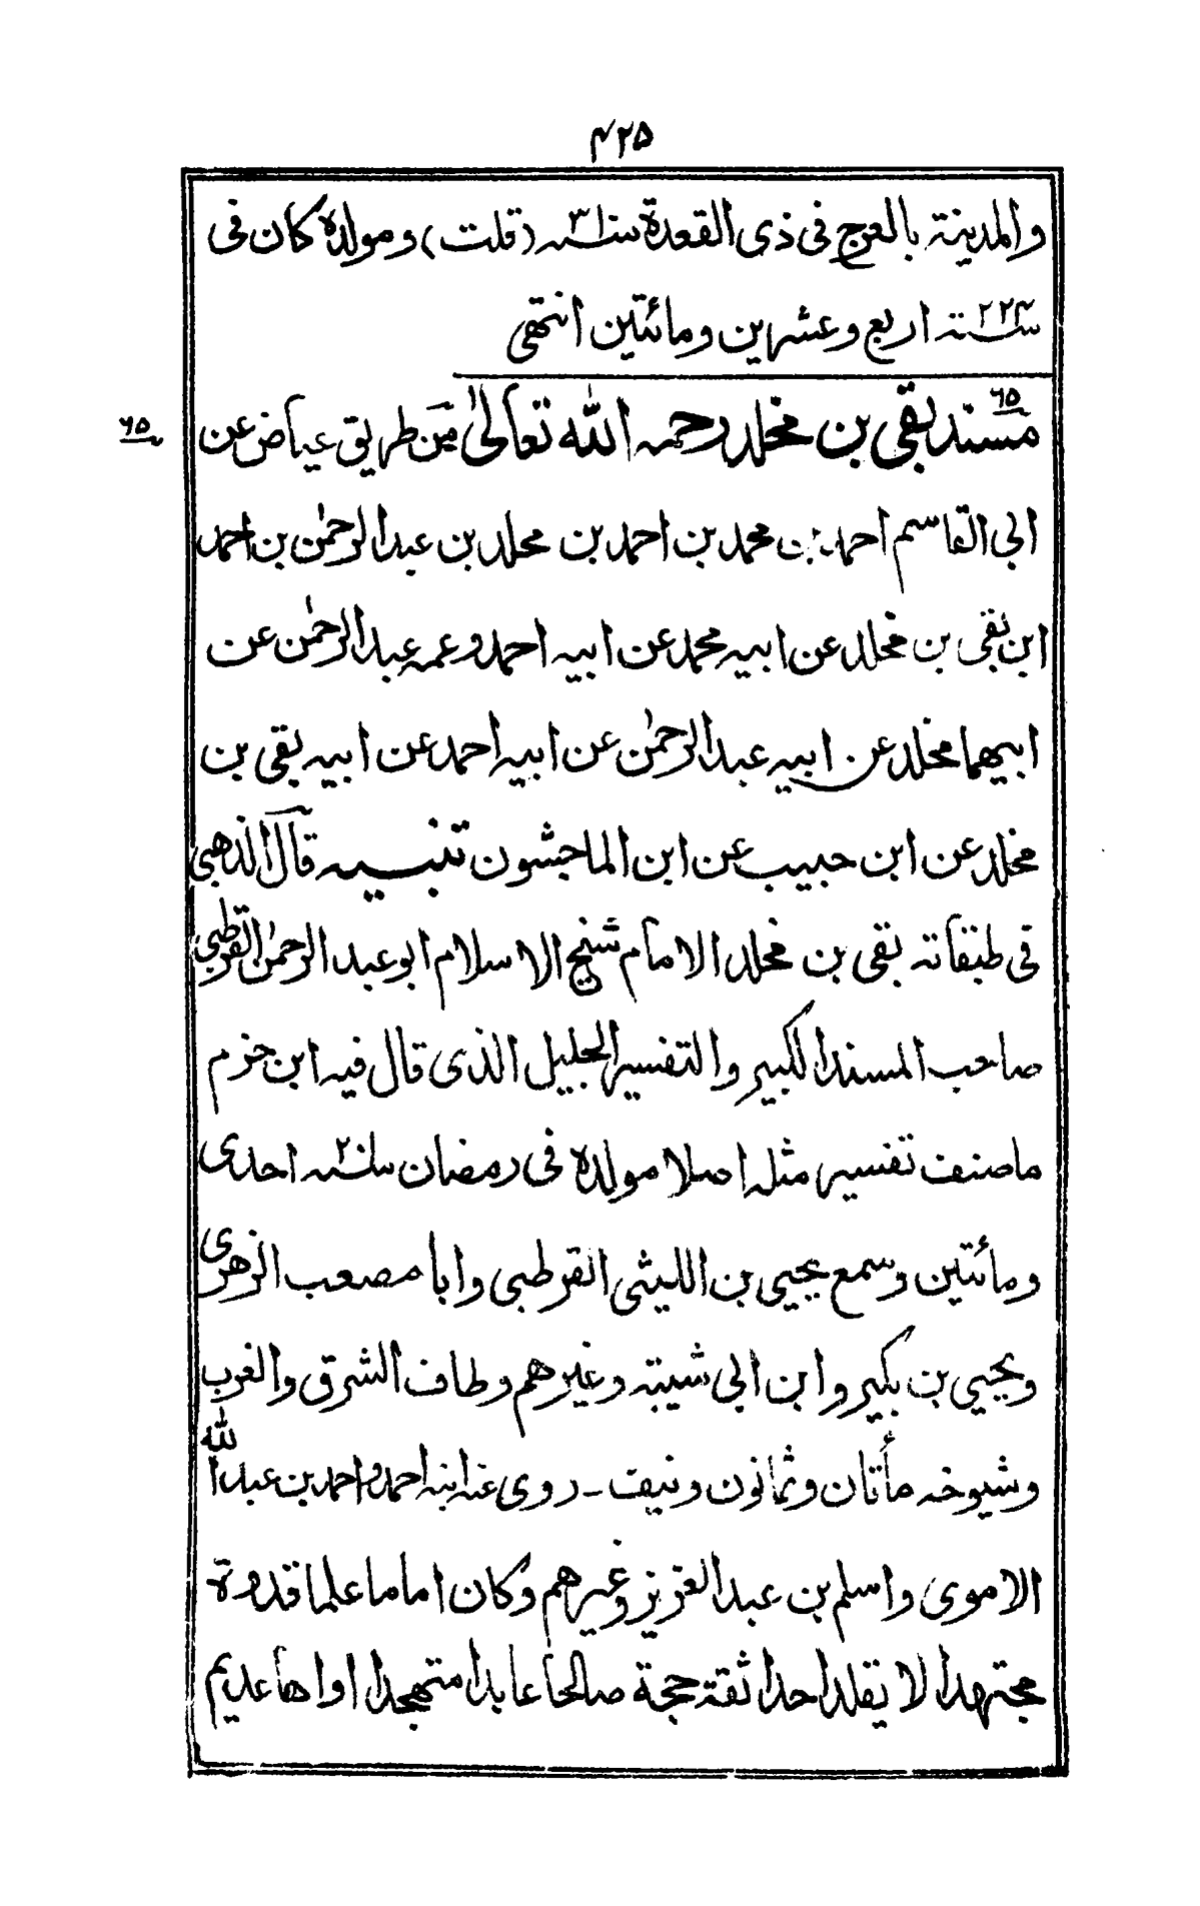 ٤٢٥
والمدينة بالعرج فى ذى القعدة سنة ٣١ (قلت) ومولده كان فى
سنة ٢٢٤ اربع وعشرين ومائتين انتهى
٦٥
مسند بقى بن مخلد رحمه الله تعالىٰ من طريق عياض عن
٦٥
ابى القاسم احمد بن محمد بن احمد بن مخلد بن عبد الرحمٰن بن احمد
ابن بقى بن مخلد عن ابيه محمد عن ابيه احمد وعمه عبد الرحمٰن عن
ابيهما مخلد عن ابيه عبد الرحمٰن عن ابيه احمد عن ابيه بقى بن
مخلد عن ابن حبيب عن ابن الماجشون تنبيه قال الذهبى
فى طبقاته بقى بن مخلد الامام شيخ الاسلام ابو عبد الرحمٰن القرطبى
صاحب المسند الكبير والتفسير الجليل الذى قال فيه ابن حزم
ما صنف تفسير مثله اصلا مولده فى رمضان سنة احدى
ومائتين وسمع يحيى بن الليثى القرطبى وابا مصعب الزهرى
ويحيى بن بكير وابن ابى شيبة وغيرهم وطاف الشرق والغرب
وشيوخه مأتان وثمانون ونيف - روى عنه ابنه احمد واحمد بن عبد الله
الاموى واسلم بن عبد العزيز وغيرهم وكان اماما علما قدوة
مجتهدا لا يقلد احدا ثقة حجة صالحا عابدا متهجدا اواها عديم